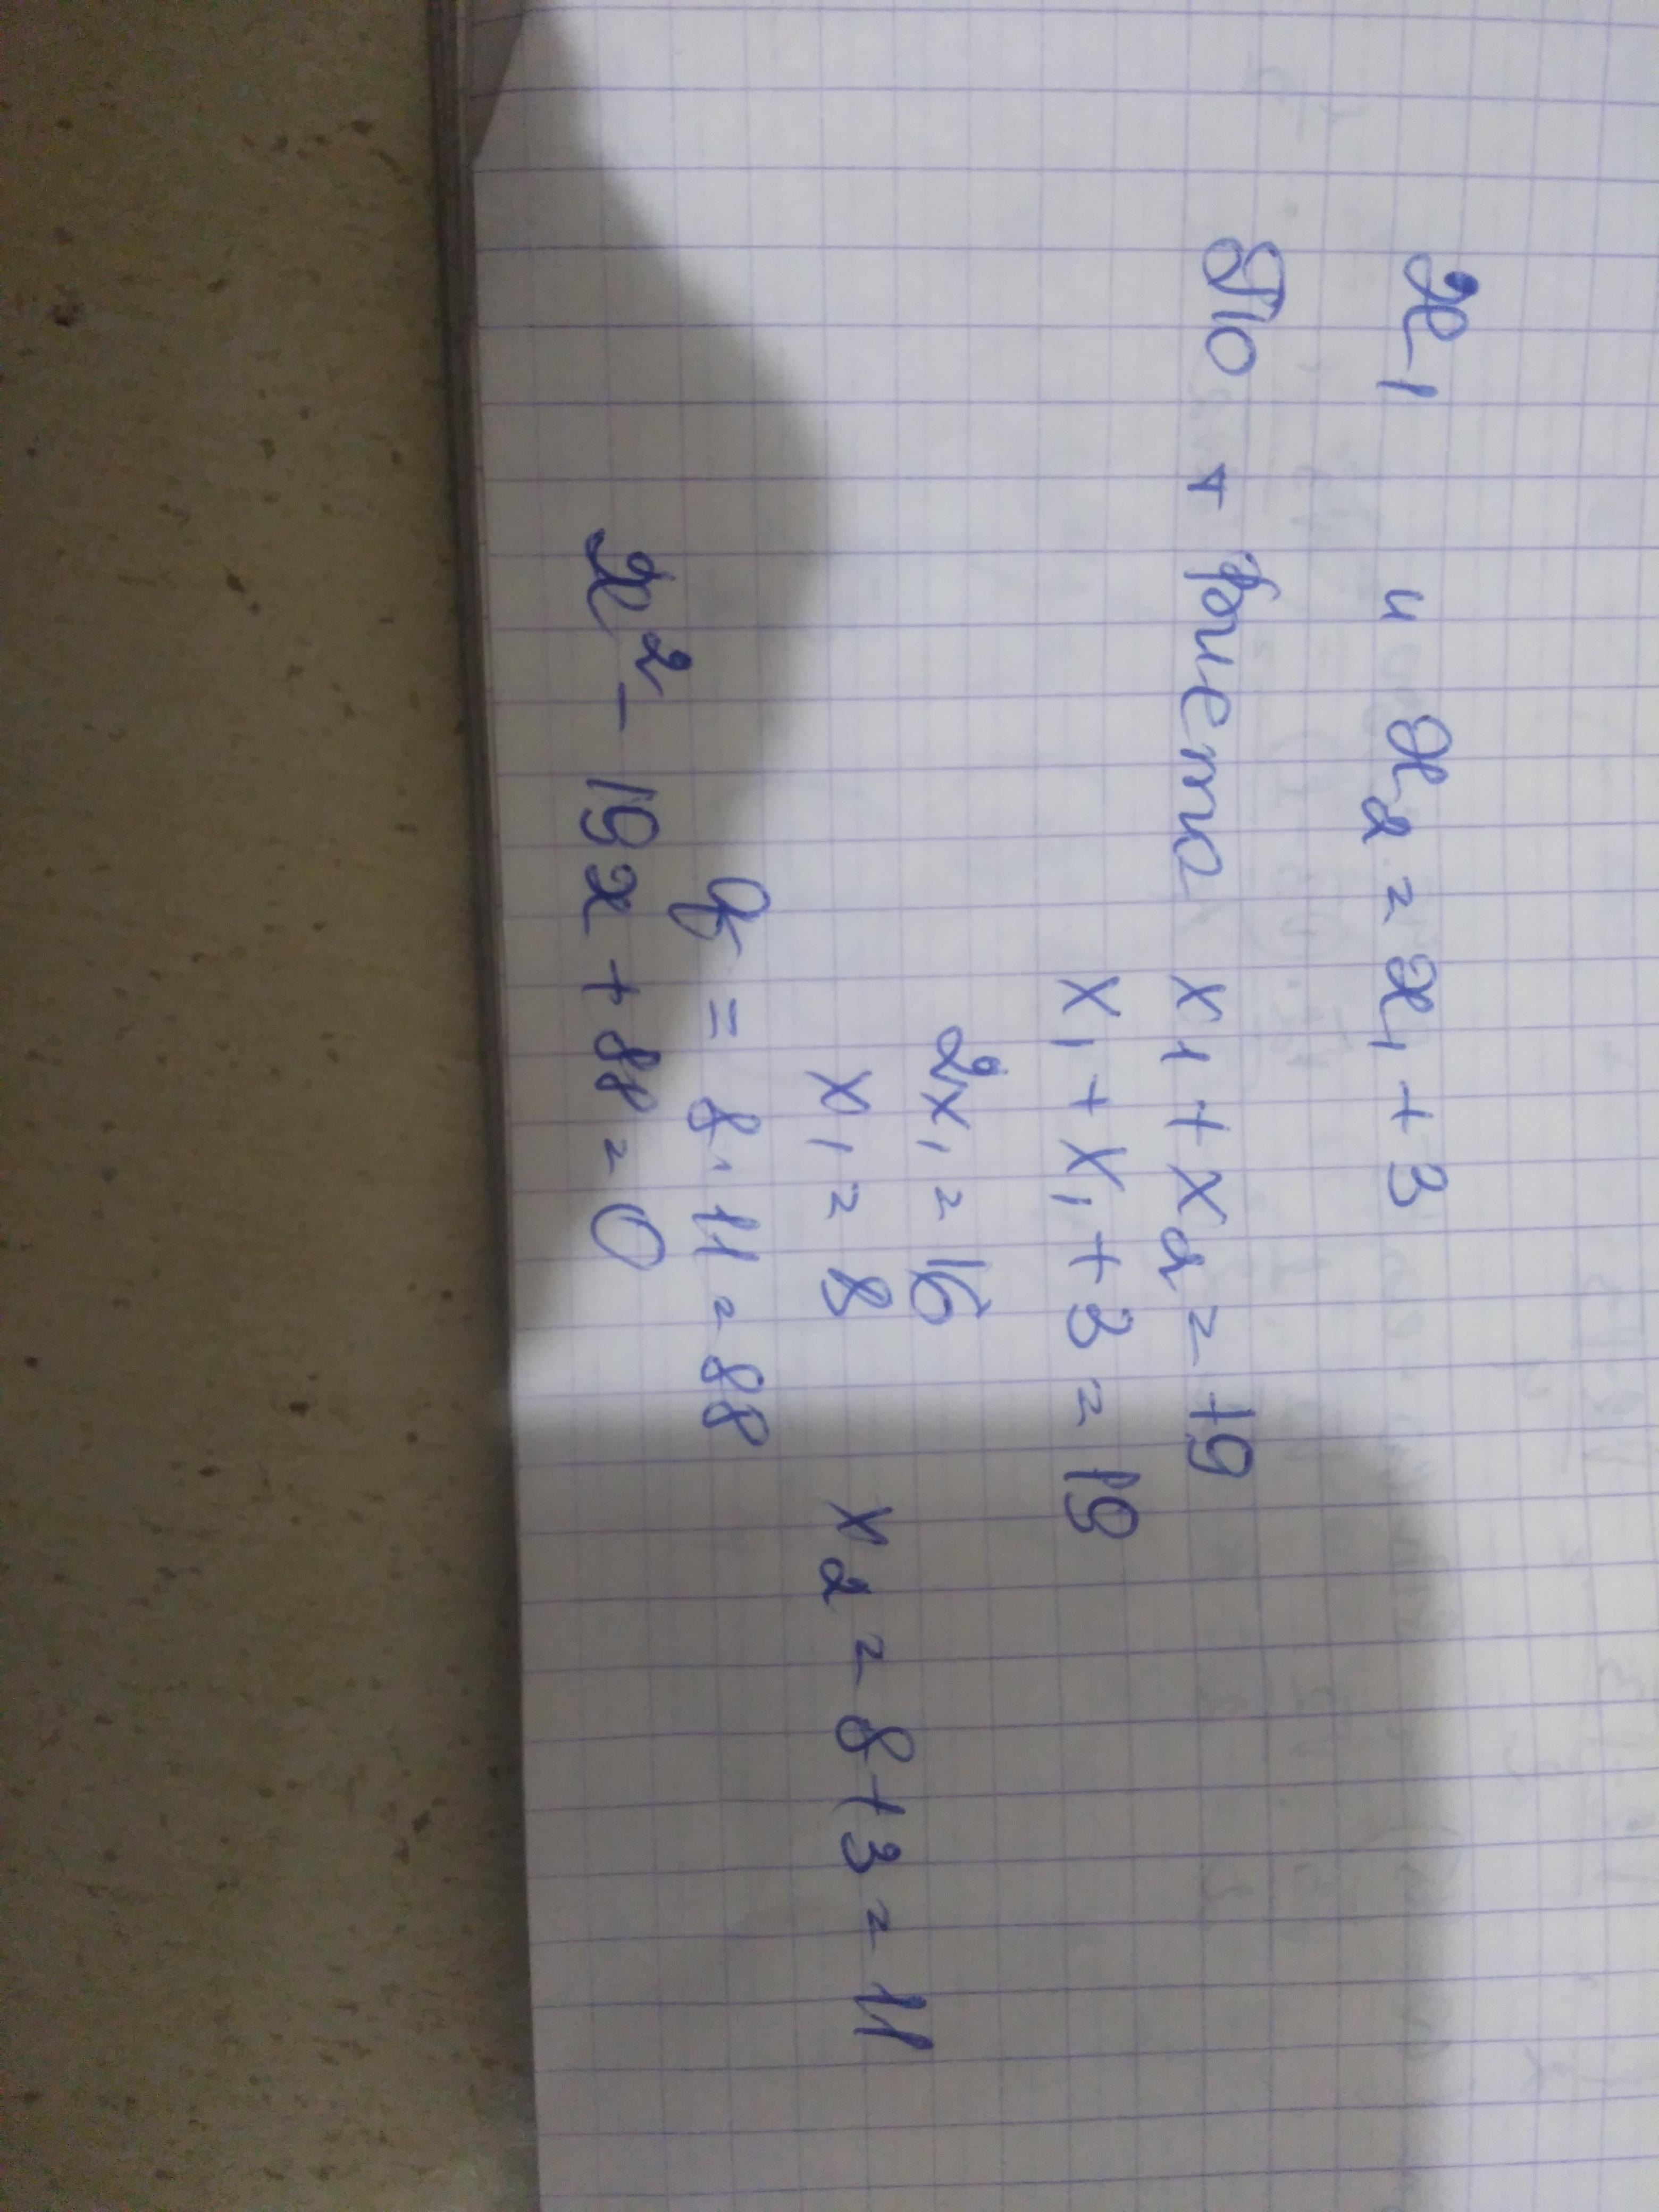 x₁ и x₂ = x₁ + 3
По т Виета x₁ + x₂ = 19
x₁ + x₁ + 3 = 19
2x₁ = 16
x₁ = 8 x₂ = 8 + 3 = 11
q = 8 · 11 = 88
x² - 19x + 88 = 0